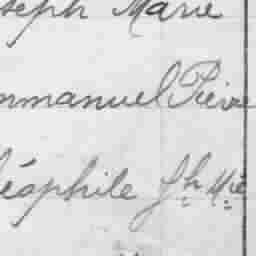 oseph Marie
mmanuel Pierre
héophile Jh Mie